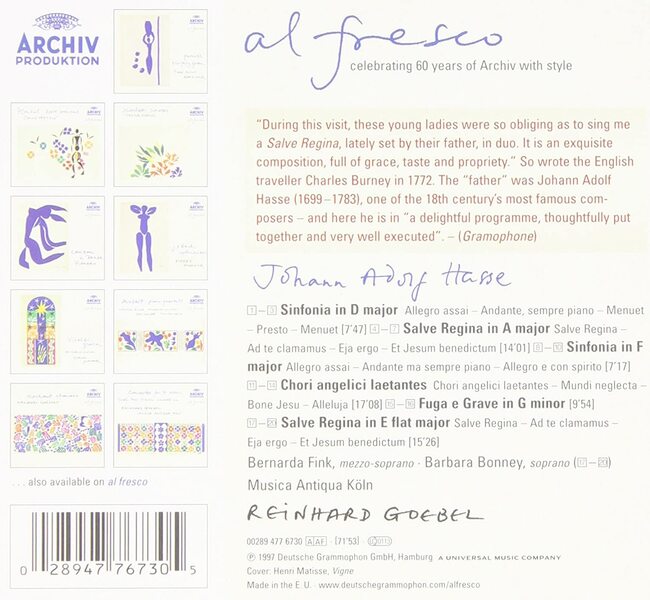 ARCHIV
PRODUKTION
al fresco
celebrating 60 years of Archiv with style
“During this visit, these young ladies were so obliging as to sing me
a Salve Regina, lately set by their father, in duo. It is an exquisite
composition, full of grace, taste and propriety.” So wrote the English
traveller Charles Burney in 1772. The “father” was Johann Adolf
Hasse (1699–1783), one of the 18th century’s most famous com-
posers – and here he is in “a delightful programme, thoughtfully put
together and very well executed”. – (Gramophone)
Johann Adolf Hasse
1–3 Sinfonia in D major Allegro assai – Andante, sempre piano – Menuet
– Presto – Menuet [7’47] 4–7 Salve Regina in A major Salve Regina –
Ad te clamamus – Eja ergo – Et Jesum benedictum [14’01] 8–10 Sinfonia in F
major Allegro assai – Andante ma sempre piano – Allegro e con spirito [7’17]
11–14 Chori angelici laetantes Chori angelici laetantes – Mundi neglecta –
Bone Jesu – Alleluja [17’08] 15–16 Fuga e Grave in G minor [9’54]
17–20 Salve Regina in E flat major Salve Regina – Ad te clamamus –
Eja ergo – Et Jesum benedictum [15’26]
Bernarda Fink, mezzo-soprano · Barbara Bonney, soprano (17–20)
Musica Antiqua Köln
REINHARD GOEBEL
. . . also available on al fresco
0 28947 76730 5
00289 477 6730 AAF · [71’53]
℗ 1997 Deutsche Grammophon GmbH, Hamburg A UNIVERSAL MUSIC COMPANY
Cover: Henri Matisse, Vigne
Made in the E. U. · www.deutschegrammophon.com/alfresco